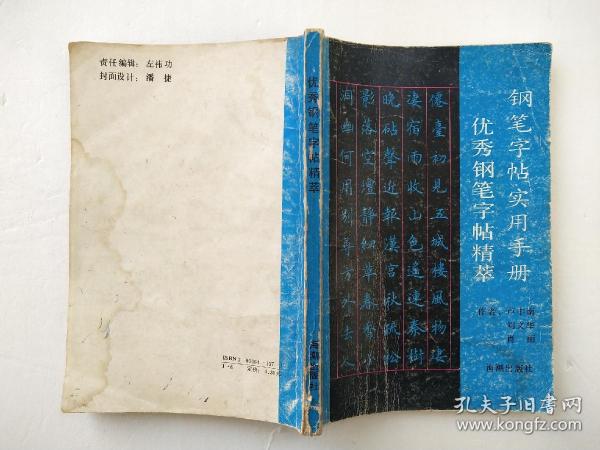 责任编辑：左伟功
封面设计：潘 捷
优秀钢笔字帖精萃
海潮出版社
钢笔字帖实用手册
优秀钢笔字帖精萃
僊臺初見五城樓風物淒
淒宿雨收山色遙連秦樹
晚砧聲近報漢宮秋疏松
影落空壇靜細草春香小
洞幽何用別尋方外去人
作者：卢中南
刘文华
海潮出版社
ISBN
定价：
孔夫子旧书网
www.kongfz.com